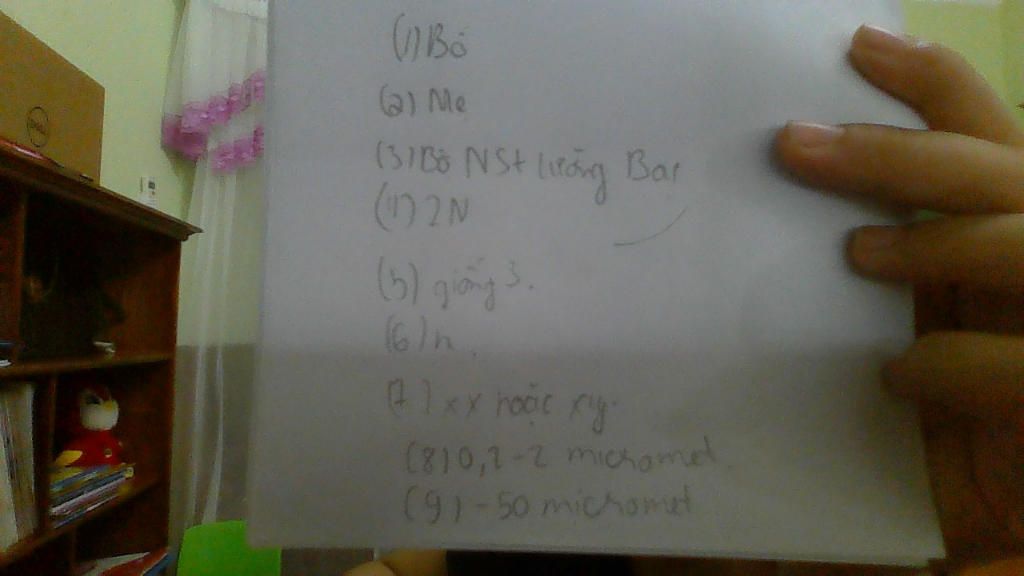 DELL
(1) Bố
(2) Mẹ
(3) Bộ NSt lưỡng Bar
(4) 2N
(5) giống 3.
(6) n.
(7) xx hoặc xy.
(8) 0,2 - 2 micromet.
(9) - 50 micromet